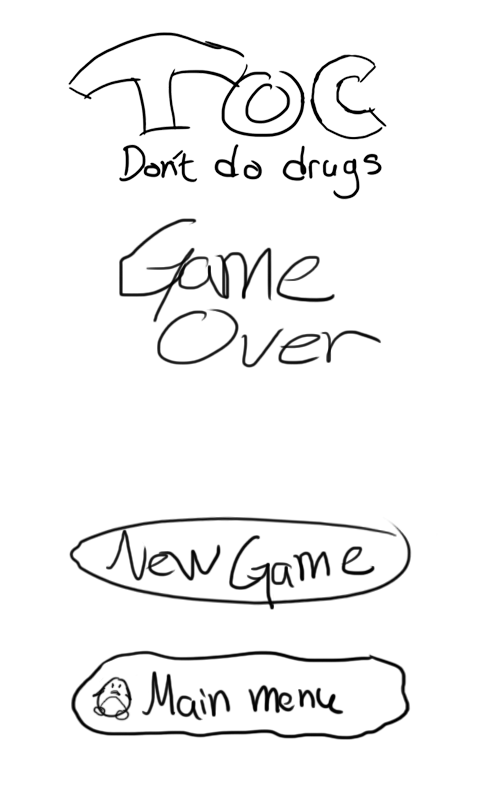 TOC
Don't do drugs
Game
Over
New Game
Main menu